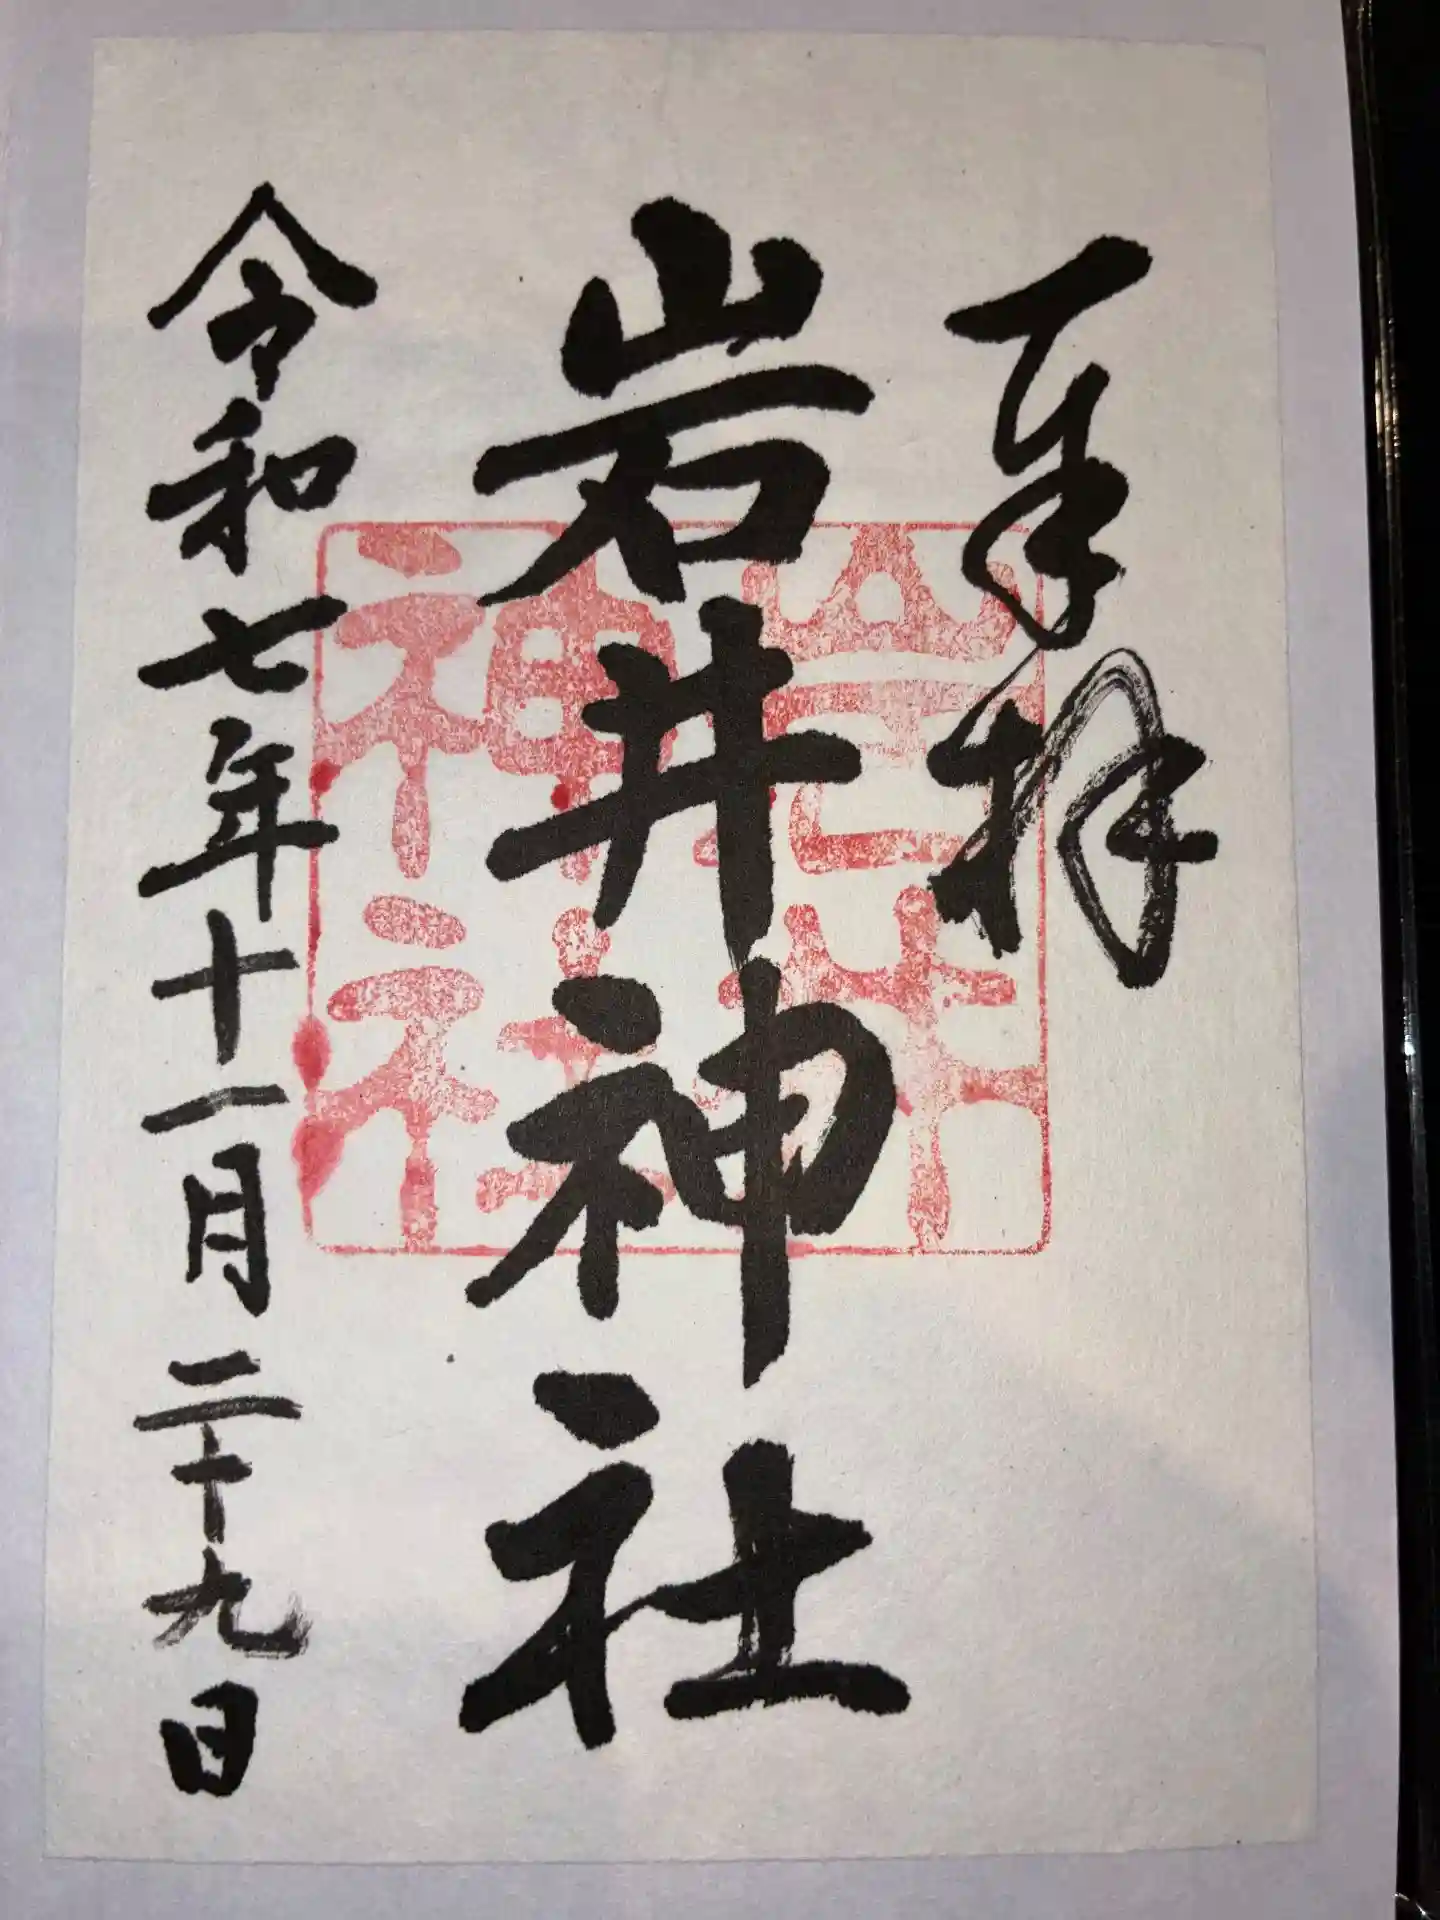 奉拝
岩井神社
岩井神社
令和七年十一月二十九日